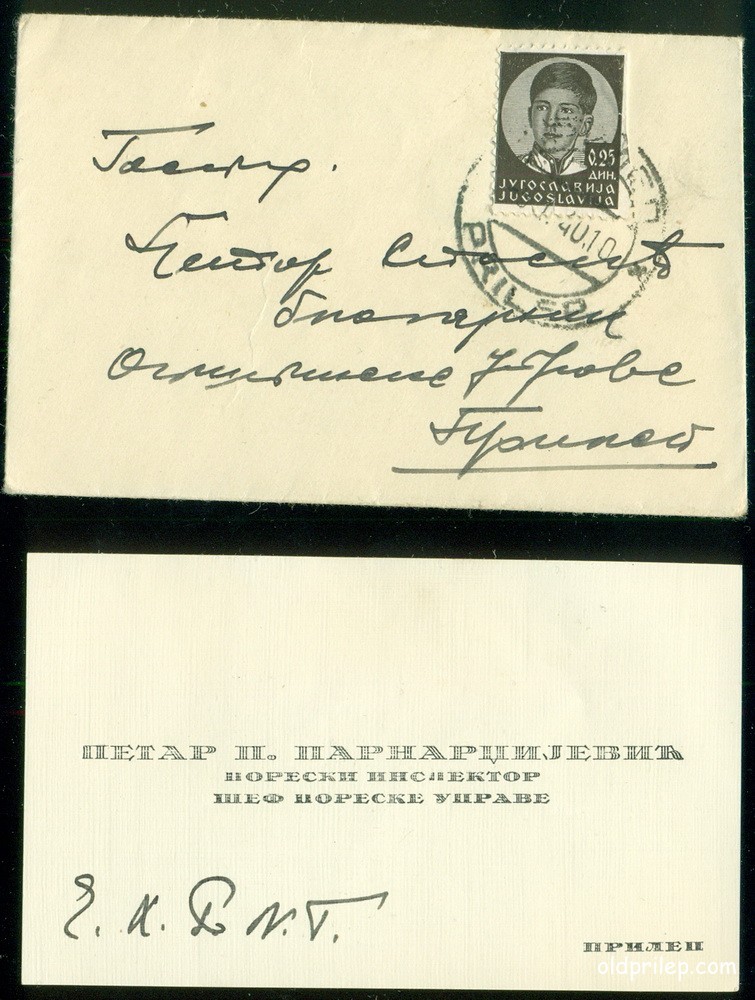 0.25
ДИН.
ЈУГОСЛАВИЈА
JUGOSLAVIJA
40.10
PRILEP
Петар
благајник
Општинске
Прилеп
ПЕТАР П. ПАРНАРЦИЈЕВИЋ
ПОРЕСКИ ИНСПЕКТОР
ШЕФ ПОРЕСКЕ УПРАВЕ
ПРИЛЕП
oldprilep.com